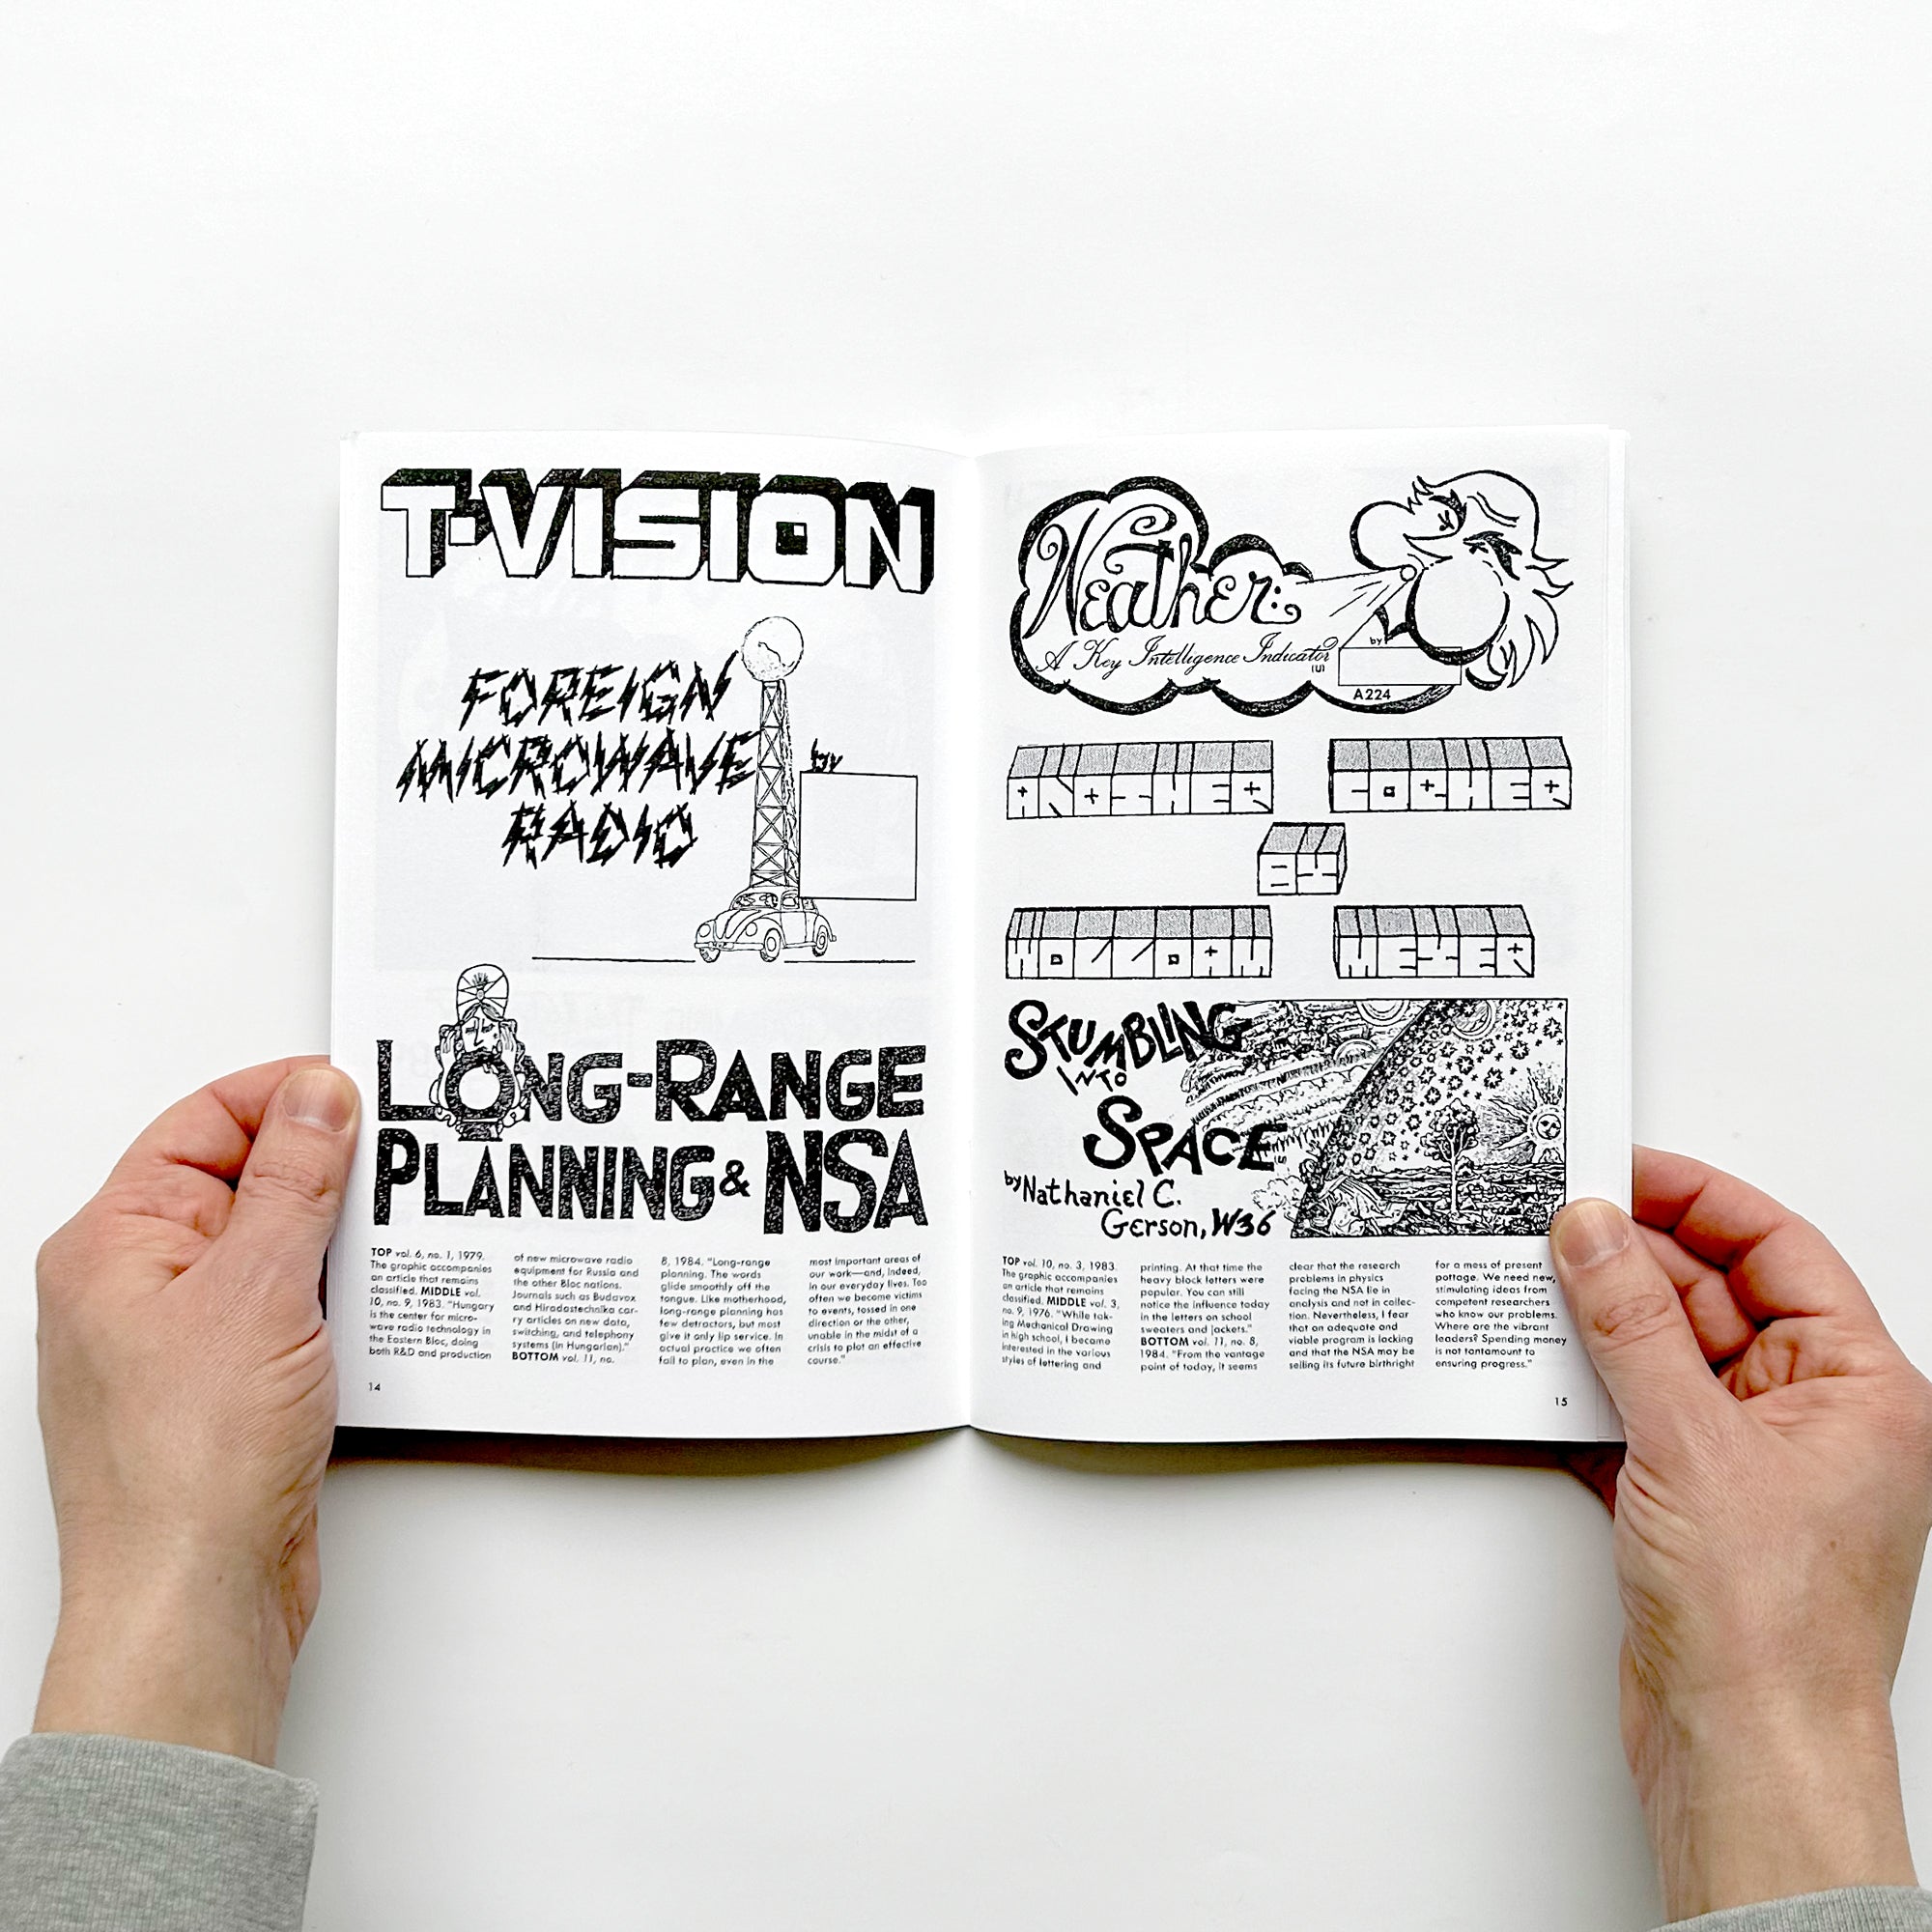 T-VISION
FOREIGN
MICROWAVE
RADIO
by
LONG-RANGE
PLANNING & NSA
TOP vol. 6, no. 1, 1979.
The graphic accompanies
an article that remains
classified. MIDDLE vol.
10, no. 9, 1983. "Hungary
is the center for micro-
wave radio technology in
the Eastern Bloc, doing
both R&D and production
of new microwave radio
equipment for Russia and
the other Bloc nations.
Journals such as Budavox
and Hiradastechnika car-
ry articles on new data,
switching, and telephony
systems (in Hungarian)."
BOTTOM vol. 11, no.
8, 1984. "Long-range
planning. The words
glide smoothly off the
tongue. Like motherhood,
long-range planning has
few detractors, but most
give it only lip service. In
actual practice we often
fail to plan, even in the
most important areas of
our work—and, indeed,
in our everyday lives. Too
often we become victims
to events, tossed in one
direction or the other,
unable in the midst of a
crisis to plot an effective
course."
14
Weather:
A Key Intelligence Indicator
(U)
by
A224
ANOTHER
BY
MEYER
STUMBLING
INTO
SPACE
by Nathaniel C.
Gerson, W36
TOP vol. 10, no. 3, 1983.
The graphic accompanies
an article that remains
classified. MIDDLE vol. 3,
no. 9, 1976. "While tak-
ing Mechanical Drawing
in high school, I became
interested in the various
styles of lettering and
printing. At that time the
heavy block letters were
popular. You can still
notice the influence today
in the letters on school
sweaters and jackets."
BOTTOM vol. 11, no. 8,
1984. "From the vantage
point of today, it seems
clear that the research
problems in physics
facing the NSA lie in
analysis and not in collec-
tion. Nevertheless, I fear
that an adequate and
viable program is lacking
and that the NSA may be
selling its future birthright
for a mess of present
pottage. We need new,
stimulating ideas from
competent researchers
who know our problems.
Where are the vibrant
leaders? Spending money
is not tantamount to
ensuring progress."
15